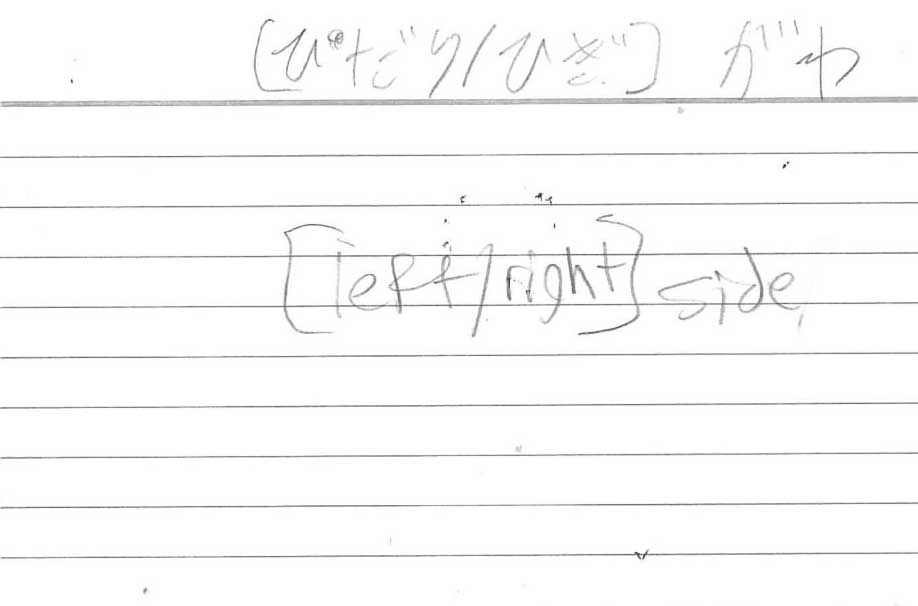 [ひだり/ひぎ] がわ
[left/right] side